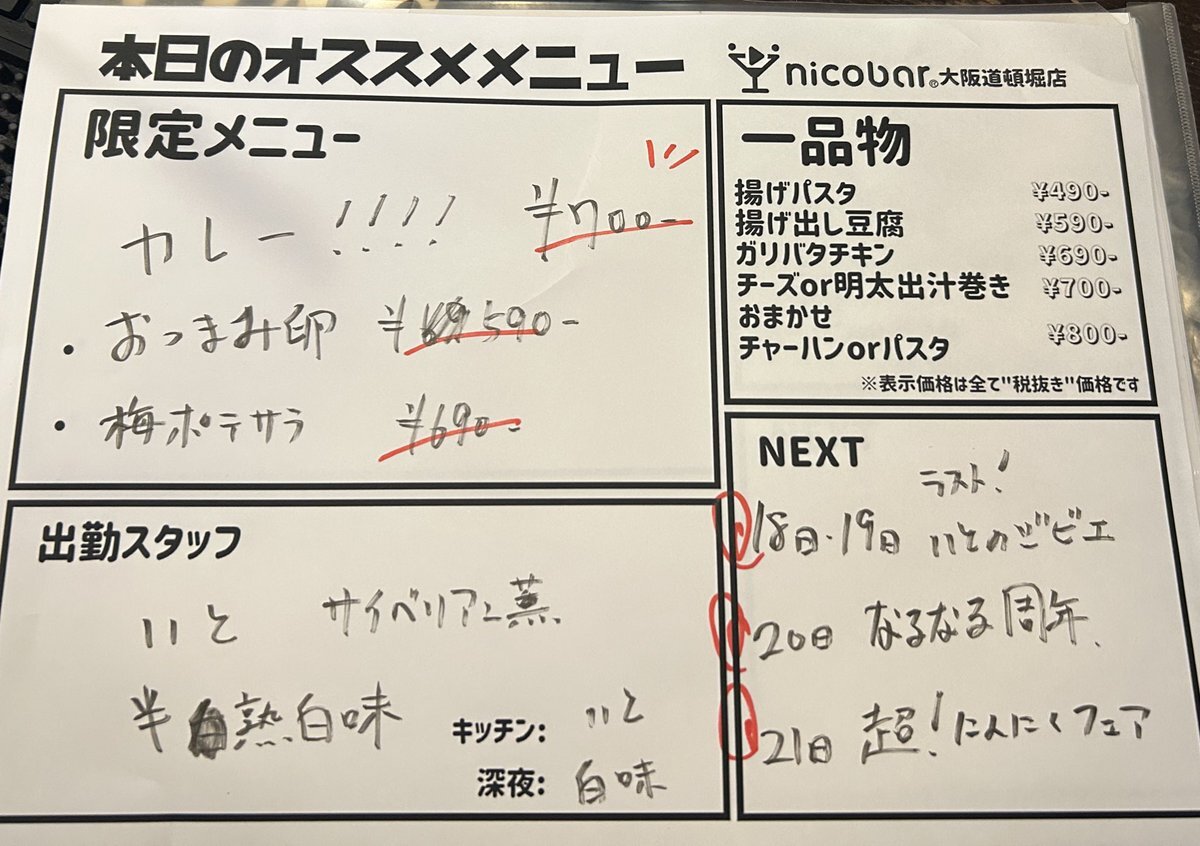 本日のオススメメニュー
nicobar® 大阪道頓堀店
限定メニュー
カレー!!!! ¥700-
・おつまみ卵 ¥590-
・梅ポテサラ ¥690-
一品物
揚げパスタ ¥490-
揚げ出し豆腐 ¥590-
ガリバタチキン ¥690-
チーズor明太出汁巻き ¥700-
おまかせ
チャーハンorパスタ ¥800-
※表示価格は全て"税抜き"価格です
出勤スタッフ
いと サイベリアン蒸
半熟白味
キッチン: いと
深夜: 白味
NEXT
ラスト!
18日・19日 いとのジビエ
20日 なるなる周年、
21日 超!にんにくフェア